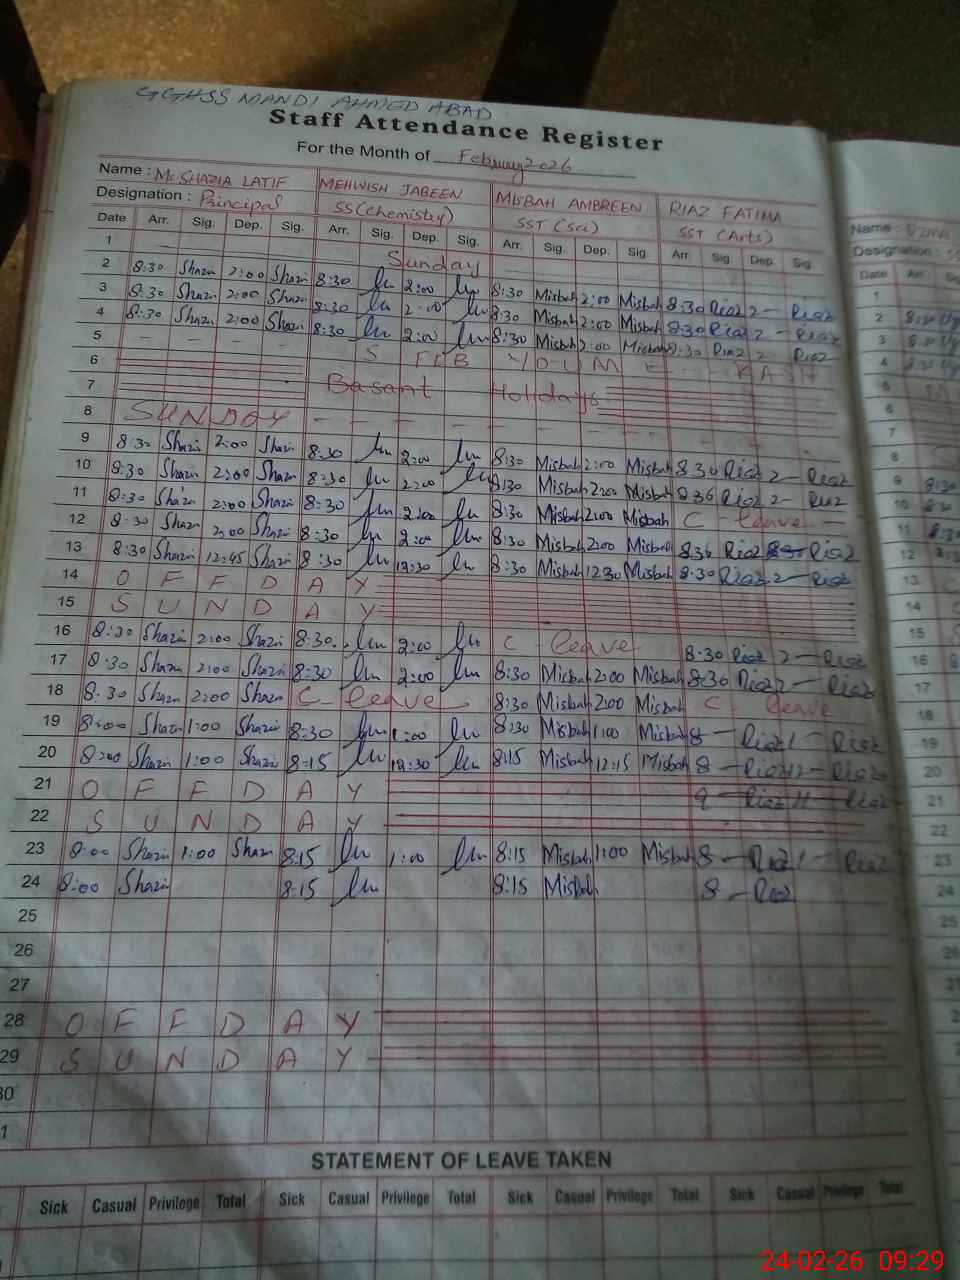 GGHSS MANDI AHMED ABAD
Staff Attendance Register
For the Month of February 2026
Name : Ms SHAZIA LATIF MEHWISH JABEEN MISBAH AMBREEN RIAZ FATIMA
Designation : Principal SS (Chemistry) SST (Sci) SST (Arts)
Date Arr. Sig. Dep. Sig. Arr. Sig. Dep. Sig. Arr. Sig. Dep. Sig. Arr. Sig. Dep. Sig.
1 Sunday
2 8:30 Shazia 2:00 Shazia 8:30 2:00 8:30 Misbah 2:00 Misbah 8:30 Riaz 2 — Riaz
3 8:30 Shazia 2:00 Shazia 8:30 2:00 8:30 Misbah 2:00 Misbah 8:30 Riaz 2 — Riaz
4 8:30 Shazia 2:00 Shazia 8:30 2:00 8:30 Misbah 2:00 Misbah 8:30 Riaz 2 Riaz
5 — — — — 5 FEB YOUM - E - KASH
6
7 Basant Holidays
8 SUNDAY
9 8:30 Shazia 2:00 Shazia 8:30 2:00 8:30 Misbah 2:00 Misbah 8:30 Riaz 2 — Riaz
10 8:30 Shazia 2:00 Shazia 8:30 2:00 8:30 Misbah 2:00 Misbah 8:30 Riaz 2 — Riaz
11 8:30 Shazia 2:00 Shazia 8:30 2:00 8:30 Misbah 2:00 Misbah C — leave —
12 8:30 Shazia 2:00 Shazia 8:30 2:00 8:30 Misbah 2:00 Misbah 8:30 Riaz Riaz
13 8:30 Shazia 12:45 Shazia 8:30 12:30 8:30 Misbah 12:30 Misbah 8:30 Riaz 2 — Riaz
14 O F F D A Y
15 S U N D A Y
16 8:30 Shazia 2:00 Shazia 8:30 2:00 C leave 8:30 Riaz 2 — Riaz
17 8:30 Shazia 2:00 Shazia 8:30 2:00 8:30 Misbah 2:00 Misbah 8:30 Riaz 2 — Riaz
18 8:30 Shazia 2:00 Shazia C - leave 8:30 Misbah 2:00 Misbah C leave
19 8:00 Shazia 1:00 Shazia 8:30 1:00 8:30 Misbah 1:00 Misbah 8 — Riaz 1 — Riaz
20 8:00 Shazia 1:00 Shazia 8:15 12:30 8:15 Misbah 12:15 Misbah 8 — Riaz 12 — Riaz
21 O F F D A Y 9 — Riaz 11 — Riaz
22 S U N D A Y
23 8:00 Shazia 1:00 Shazia 8:15 1:00 8:15 Misbah 1:00 Misbah 8 — Riaz 1 — Riaz
24 8:00 Shazia 8:15 8:15 Misbah 8 — Riaz
25
26
27
28 O F F D A Y
29 S U N D A Y
30
STATEMENT OF LEAVE TAKEN
Sick Casual Privilege Total Sick Casual Privilege Total Sick Casual Privilege Total Sick Casual Privilege Total
Name :
Designation :
Date Arr. Sig.
1
2 8:30
3
4
5
6
7
8
9 8:30
10 8:30
11 8:30
12
13
14
15
16
17
18
19
20
21
22
23
24
25
24-02-26 09:29